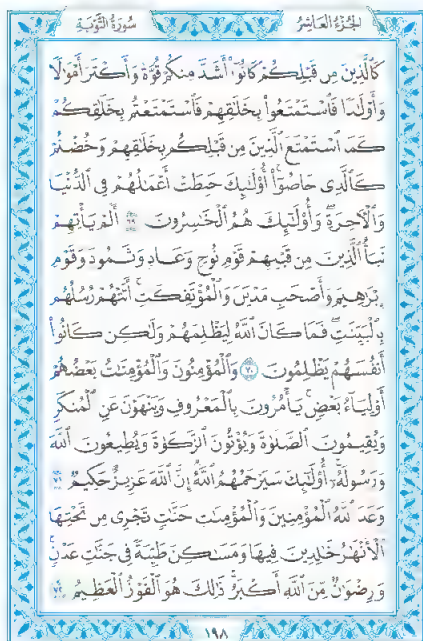 سُورَةُ التَّوْبَةِ الجُزْءُ العَاشِرُ
كَٱلَّذِينَ مِن قَبْلِكُمْ كَانُوٓا۟ أَشَدَّ مِنكُمْ قُوَّةً وَأَكْثَرَ أَمْوَٰلًا
وَأَوْلَٰدًا فَٱسْتَمْتَعُوا۟ بِخَلَٰقِهِمْ فَٱسْتَمْتَعْتُم بِخَلَٰقِكُمْ
كَمَا ٱسْتَمْتَعَ ٱلَّذِينَ مِن قَبْلِكُم بِخَلَٰقِهِمْ وَخُضْتُمْ
كَٱلَّذِى خَاضُوٓا۟ أُو۟لَٰٓئِكَ حَبِطَتْ أَعْمَٰلُهُمْ فِى ٱلدُّنْيَا
وَٱلْءَاخِرَةِ وَأُو۟لَٰٓئِكَ هُمُ ٱلْخَٰسِرُونَ ٦٩ أَلَمْ يَأْتِهِمْ
نَبَأُ ٱلَّذِينَ مِن قَبْلِهِمْ قَوْمِ نُوحٍ وَعَادٍ وَثَمُودَ وَقَوْمِ
إِبْرَٰهِيمَ وَأَصْحَٰبِ مَدْيَنَ وَٱلْمُؤْتَفِكَٰتِ أَتَتْهُمْ رُسُلُهُم
بِٱلْبَيِّنَٰتِ فَمَا كَانَ ٱللَّهُ لِيَظْلِمَهُمْ وَلَٰكِن كَانُوٓا۟
أَنفُسَهُمْ يَظْلِمُونَ ٧٠ وَٱلْمُؤْمِنُونَ وَٱلْمُؤْمِنَٰتُ بَعْضُهُمْ
أَوْلِيَآءُ بَعْضٍ يَأْمُرُونَ بِٱلْمَعْرُوفِ وَيَنْهَوْنَ عَنِ ٱلْمُنكَرِ
وَيُقِيمُونَ ٱلصَّلَوٰةَ وَيُؤْتُونَ ٱلزَّكَوٰةَ وَيُطِيعُونَ ٱللَّهَ
وَرَسُولَهُۥٓ أُو۟لَٰٓئِكَ سَيَرْحَمُهُمُ ٱللَّهُ إِنَّ ٱللَّهَ عَزِيزٌ حَكِيمٌ ٧١
وَعَدَ ٱللَّهُ ٱلْمُؤْمِنِينَ وَٱلْمُؤْمِنَٰتِ جَنَّٰتٍ تَجْرِى مِن تَحْتِهَا
ٱلْأَنْهَٰرُ خَٰلِدِينَ فِيهَا وَمَسَٰكِنَ طَيِّبَةً فِى جَنَّٰتِ عَدْنٍ
وَرِضْوَٰنٌ مِّنَ ٱللَّهِ أَكْبَرُ ذَٰلِكَ هُوَ ٱلْفَوْزُ ٱلْعَظِيمُ ٧٢
١٩٨